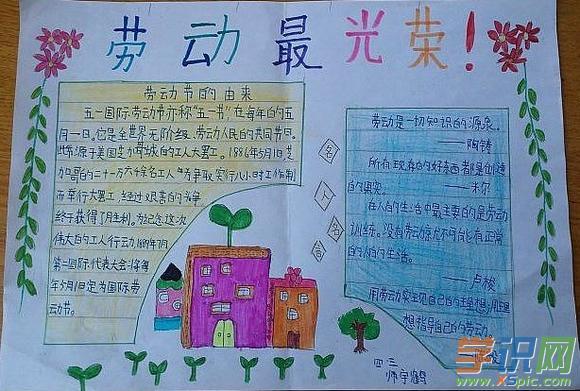 劳动最光荣！
劳动节的由来
五一国际劳动节亦称"五一节"，在每年的五
月一日。它是全世界无阶级、劳动人民的共同节日。
此节源于美国芝加哥城的工人大罢工。1886年5月1日芝
加哥的二十一万六千余名工人为争取实行八小时工作制
而举行大罢工，经过艰苦的斗争
终于获得了胜利。为纪念这次
伟大的工人行动，1889年7月
第二国际代表大会将每
年5月1日定为国际劳
动节。
名人名言
劳动是一切知识的源泉。
——陶铸
所有现存的好东西都是创造
的果实。——米尔
在人的生活中最主要的是劳动
训练。没有劳动就不可能有正常
的人的生活。
——卢梭
用劳动来实现自己的理想，用理
想指导自己的劳动。
四三
学识网
Xspic.com